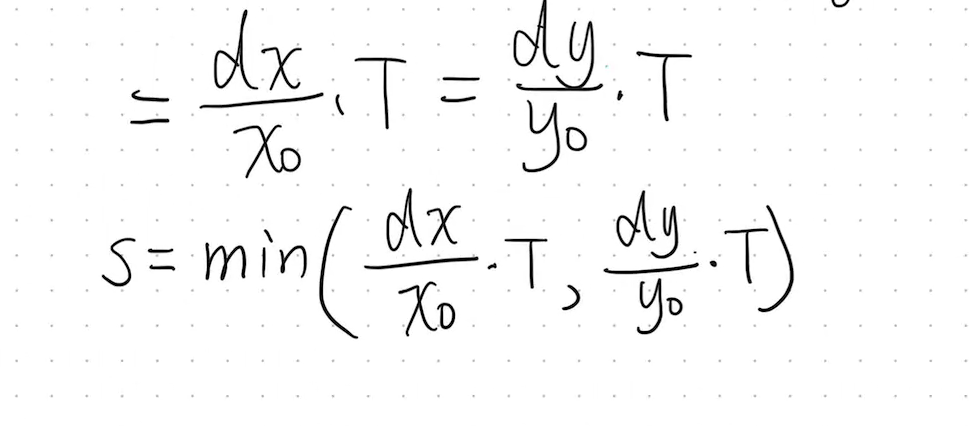 = dx/x₀ · T = dy/y₀ · T
s = min( dx/x₀ · T, dy/y₀ · T )